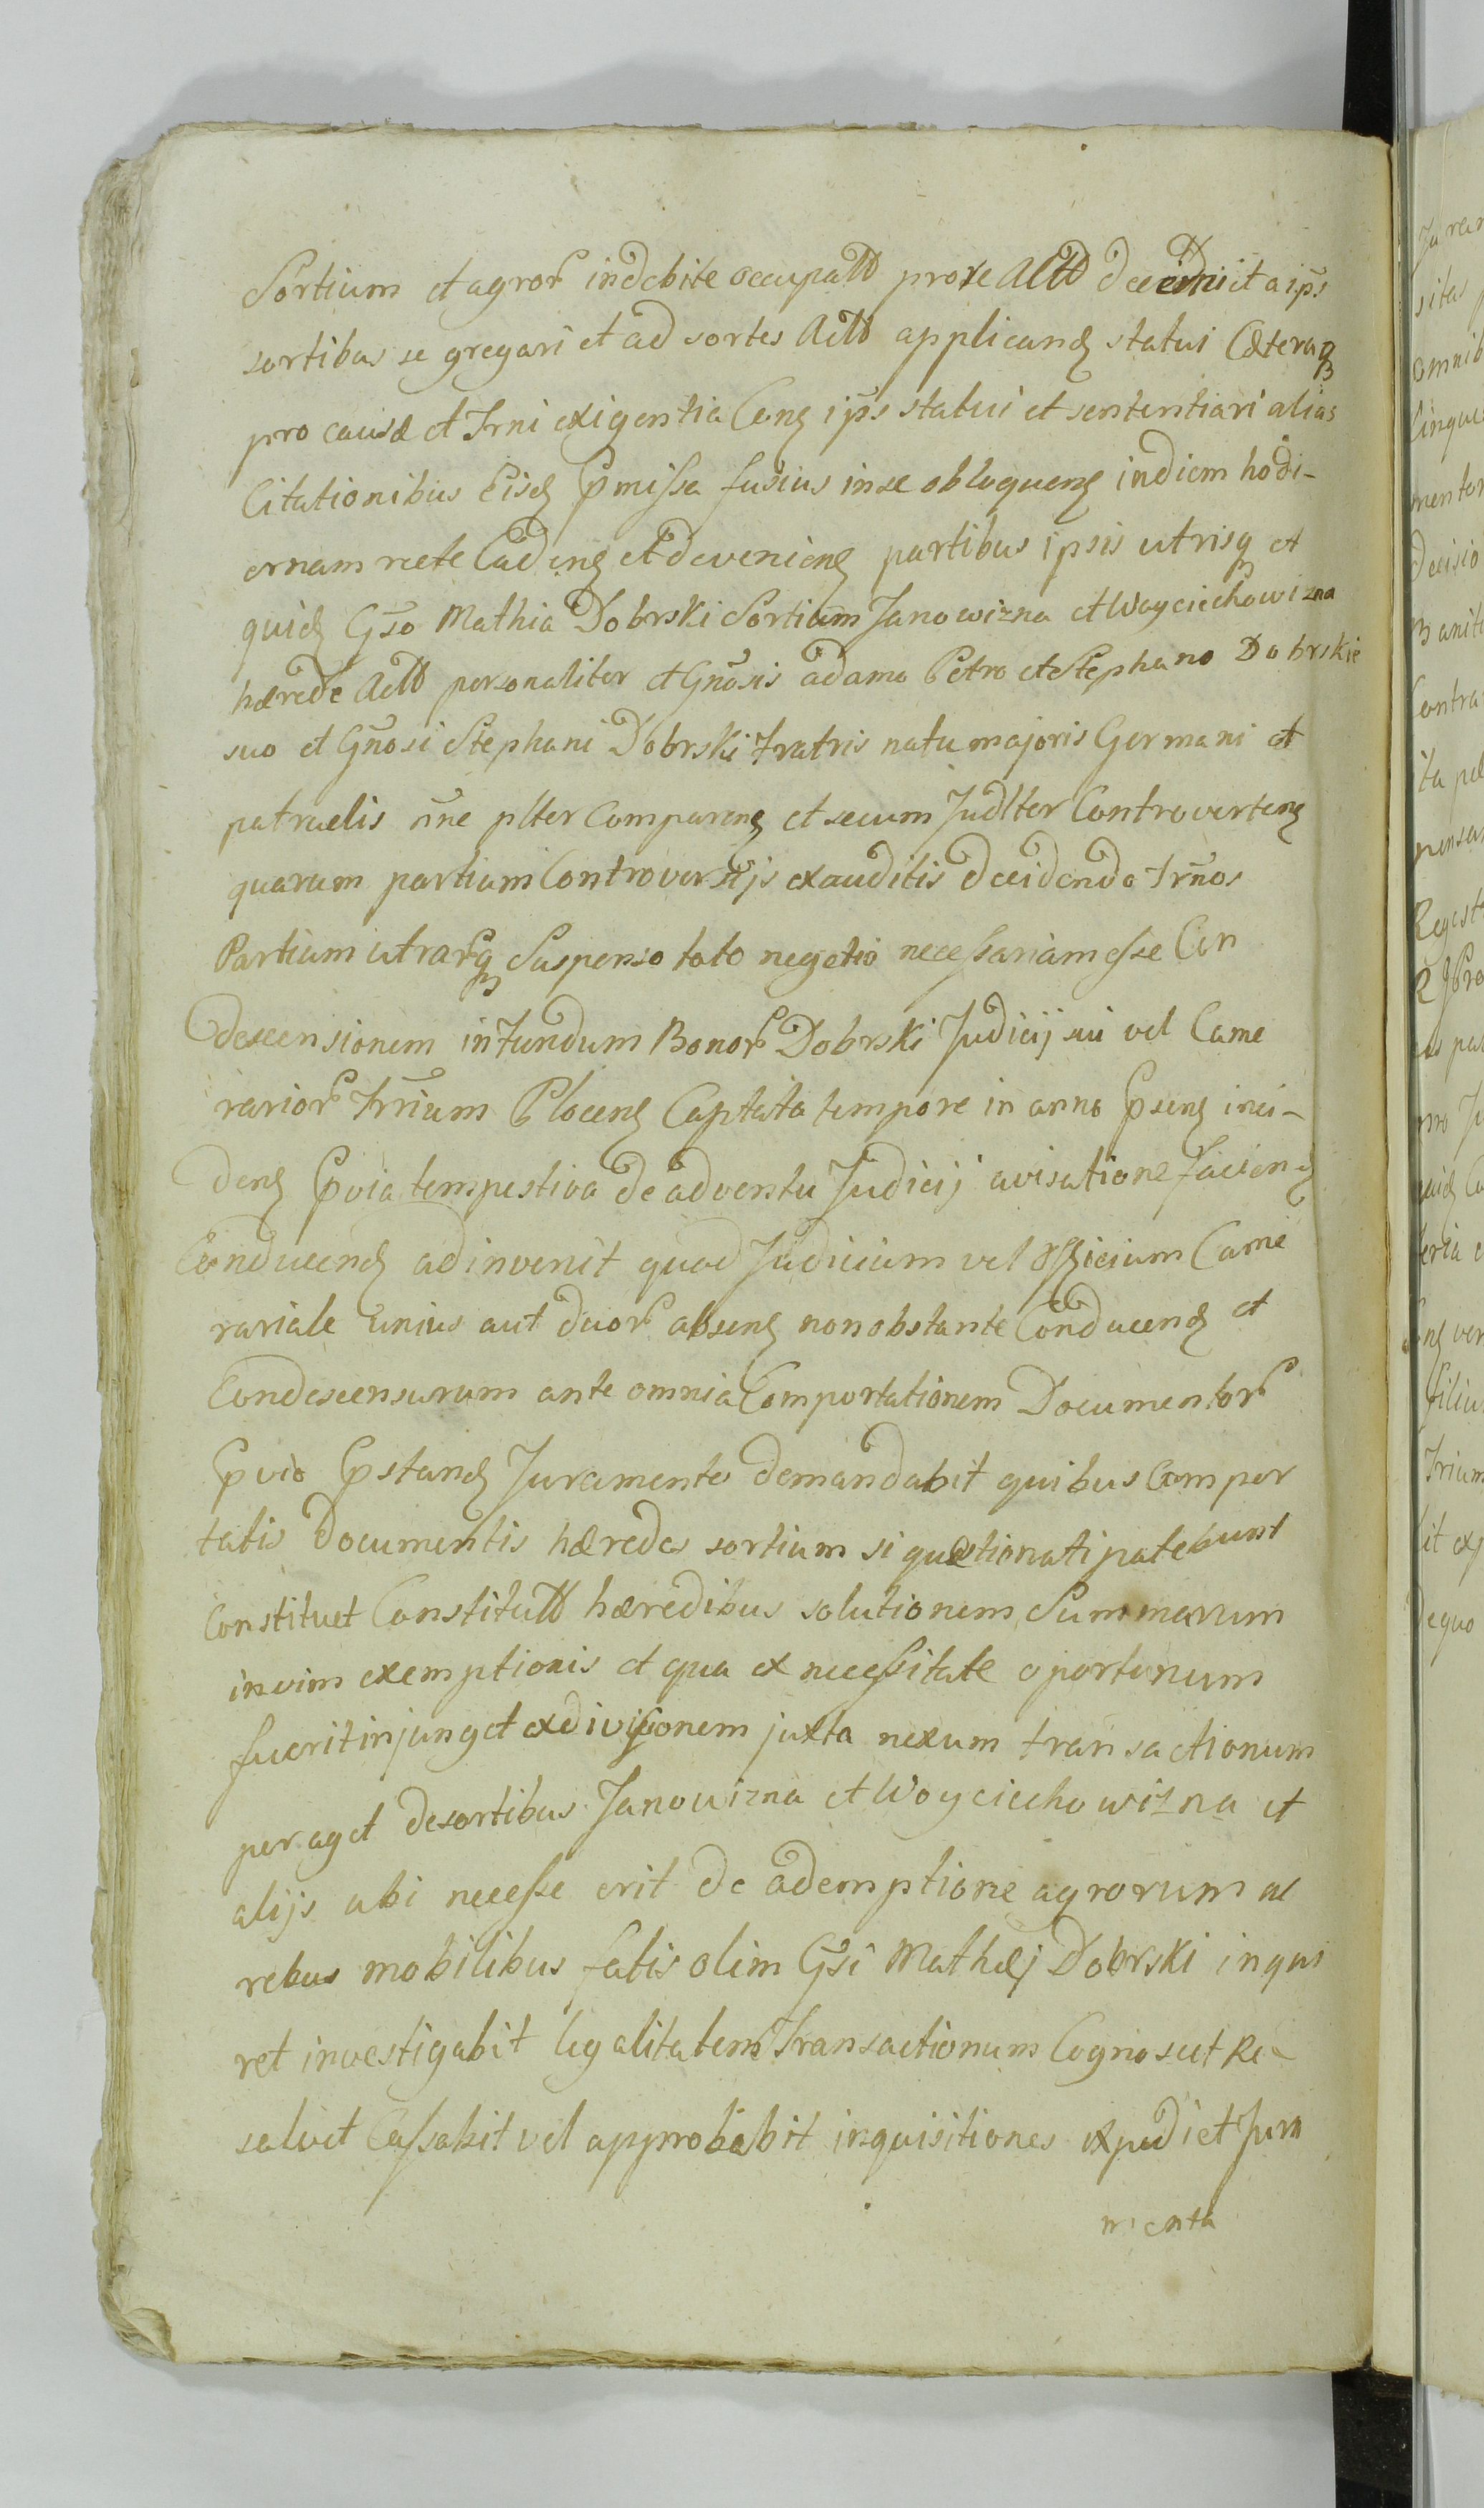 Sortium et agror indebite occupatt pro re Actt decidi et a ips
sortibus segregari et ad sortes Actt applicand statui Cæteraq
pro causæ et Trni exigentia Cens ips statui et sententiari alias
Citationibus Eisd Pmissa fusius in se obloquens in diem hodi-
ernam recte Cadens et deveniens partibus ipsis utrisq et
quid Gso Mathia Dobrski Sortium Janowizna et Woyciechowizna
hærede Actt personaliter et Gnosis adamo Petro et Stephano Dobrskie
suo et Gnosi Stephani Dobrski Fratris natu majoris Germani et
patruelis nne plter Comparens et secum Judlter Controvertens
quarum partium Controversijs exauditis decidendo Trnos
Partium utrarq Suspenso toto negotio necessariam esse Con
descensionem in Fundum Bonor Dobrski Judicij sui vel Came
rarior Trrium Plocens Captato tempore in anno Psens inci-
dens Pvia tempestiva de adventu Judicij avisatione faciend
Conducend adinvenit quod Judicium vel Officium Came
rariale unius aut duor absens non obstante Conducend et
Condescensurum ante omnia Comportationem Documentor
Pvio Pstand Juramento demandabit quibus Compor
tatis Documentis hæredes sortium si quæstionati patebunt
Constituet Constitutt hæredibus solutionem Summarum
in vim exemptionis et qua ex necessitate oportunum
fuerit injunget exdivisionem juxta nexum transactionum
peraget de sortibus Janowizna et Woyciechowizna et
alijs ubi necesse erit de ademptione agrorum ac
rebus mobilibus satis olim Gsi Mathæj Dobrski inqui
ret investigabit legalitatem Transactionum Cognoscet Re-
solvet Cassabit vel approbabit inquisitiones expediet Jura
menta